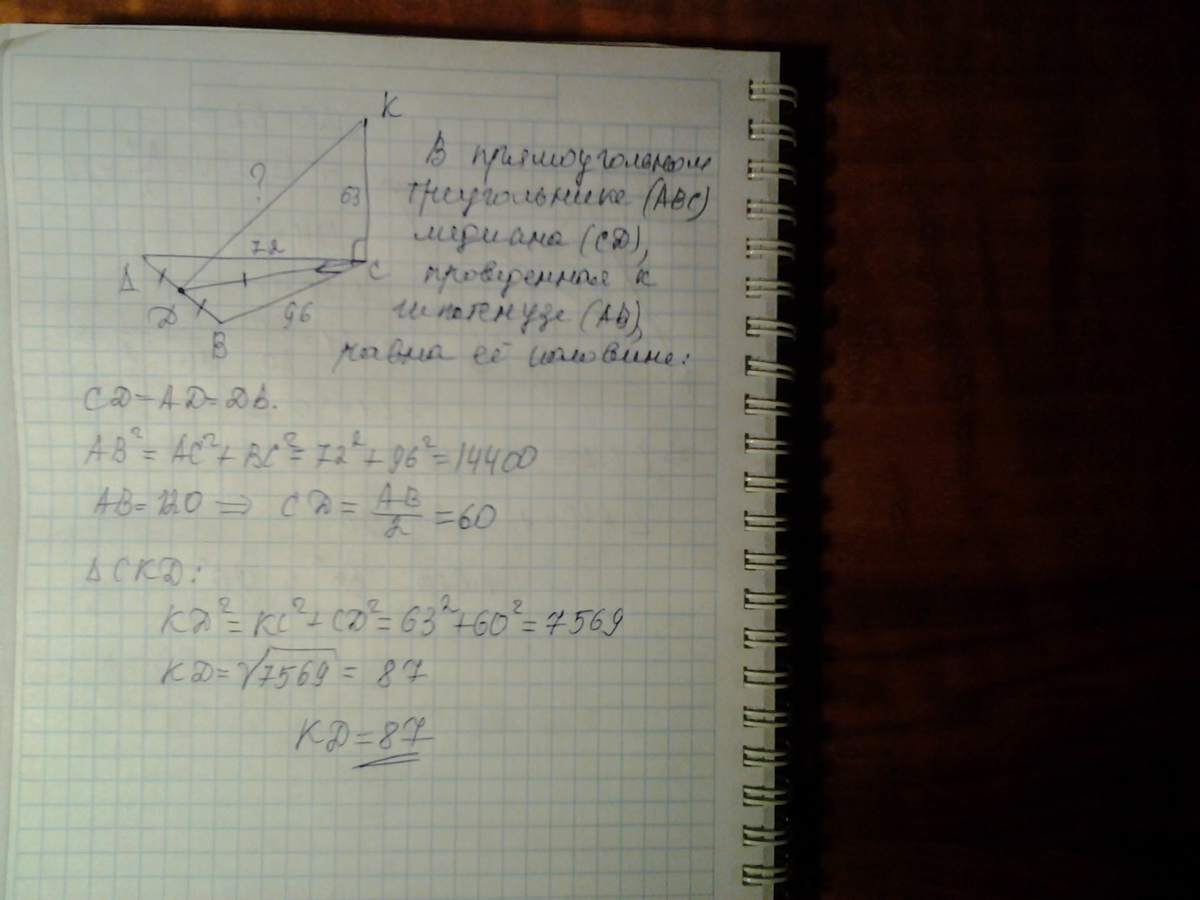 K
?
63
72
A
C
D
96
B
В прямоугольном
треугольнике (ABC)
медиана (CD),
проведенная к
гипотенузе (AB),
равна её половине:
CD=AD=DB.
AB²=AC²+BC²=72²+96²=14400
AB=120 ⇒ CD=AB/2=60
ΔCKD:
KD²=KC²+CD²=63²+60²=7569
KD=√7569=87
KD=87